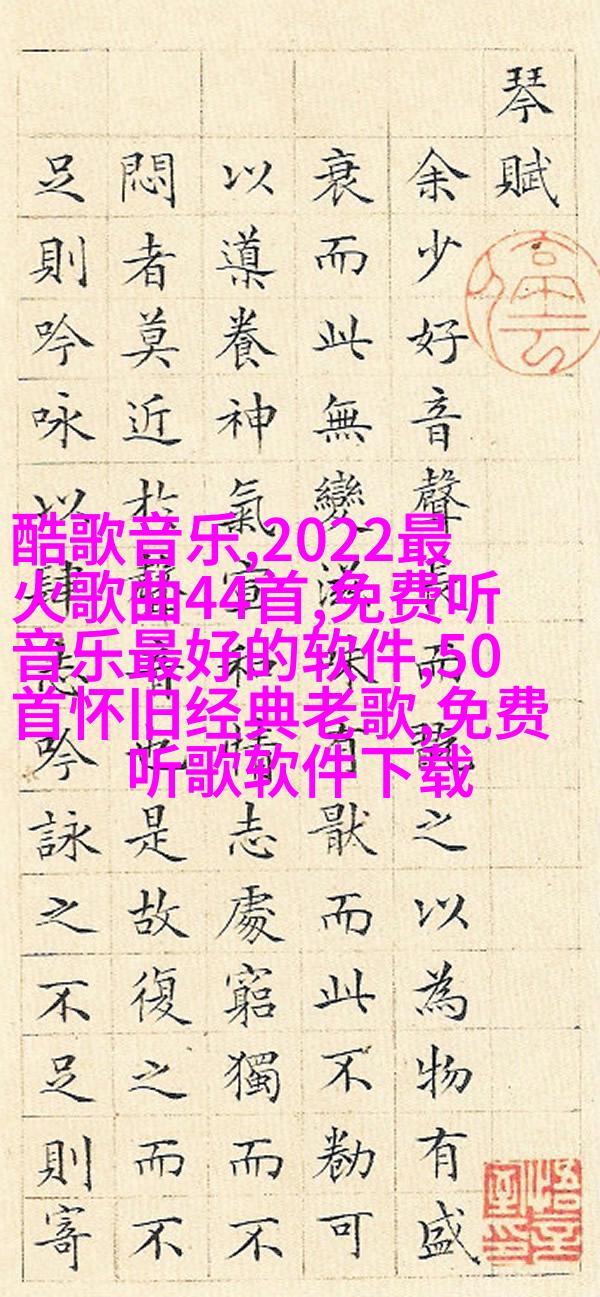 琴賦
余少好音聲長而翫之以為物有盛
衰而此無變滋味有猒而此不勌可
以導養神氣宣和情志處窮獨而不
悶者莫近於聲音也是故復之而不
足則吟咏以肆志吟詠之不足則寄
酷歌音乐,2022最
火歌曲44首,免费听
音乐最好的软件,50
首怀旧经典老歌,免费
听歌软件下载